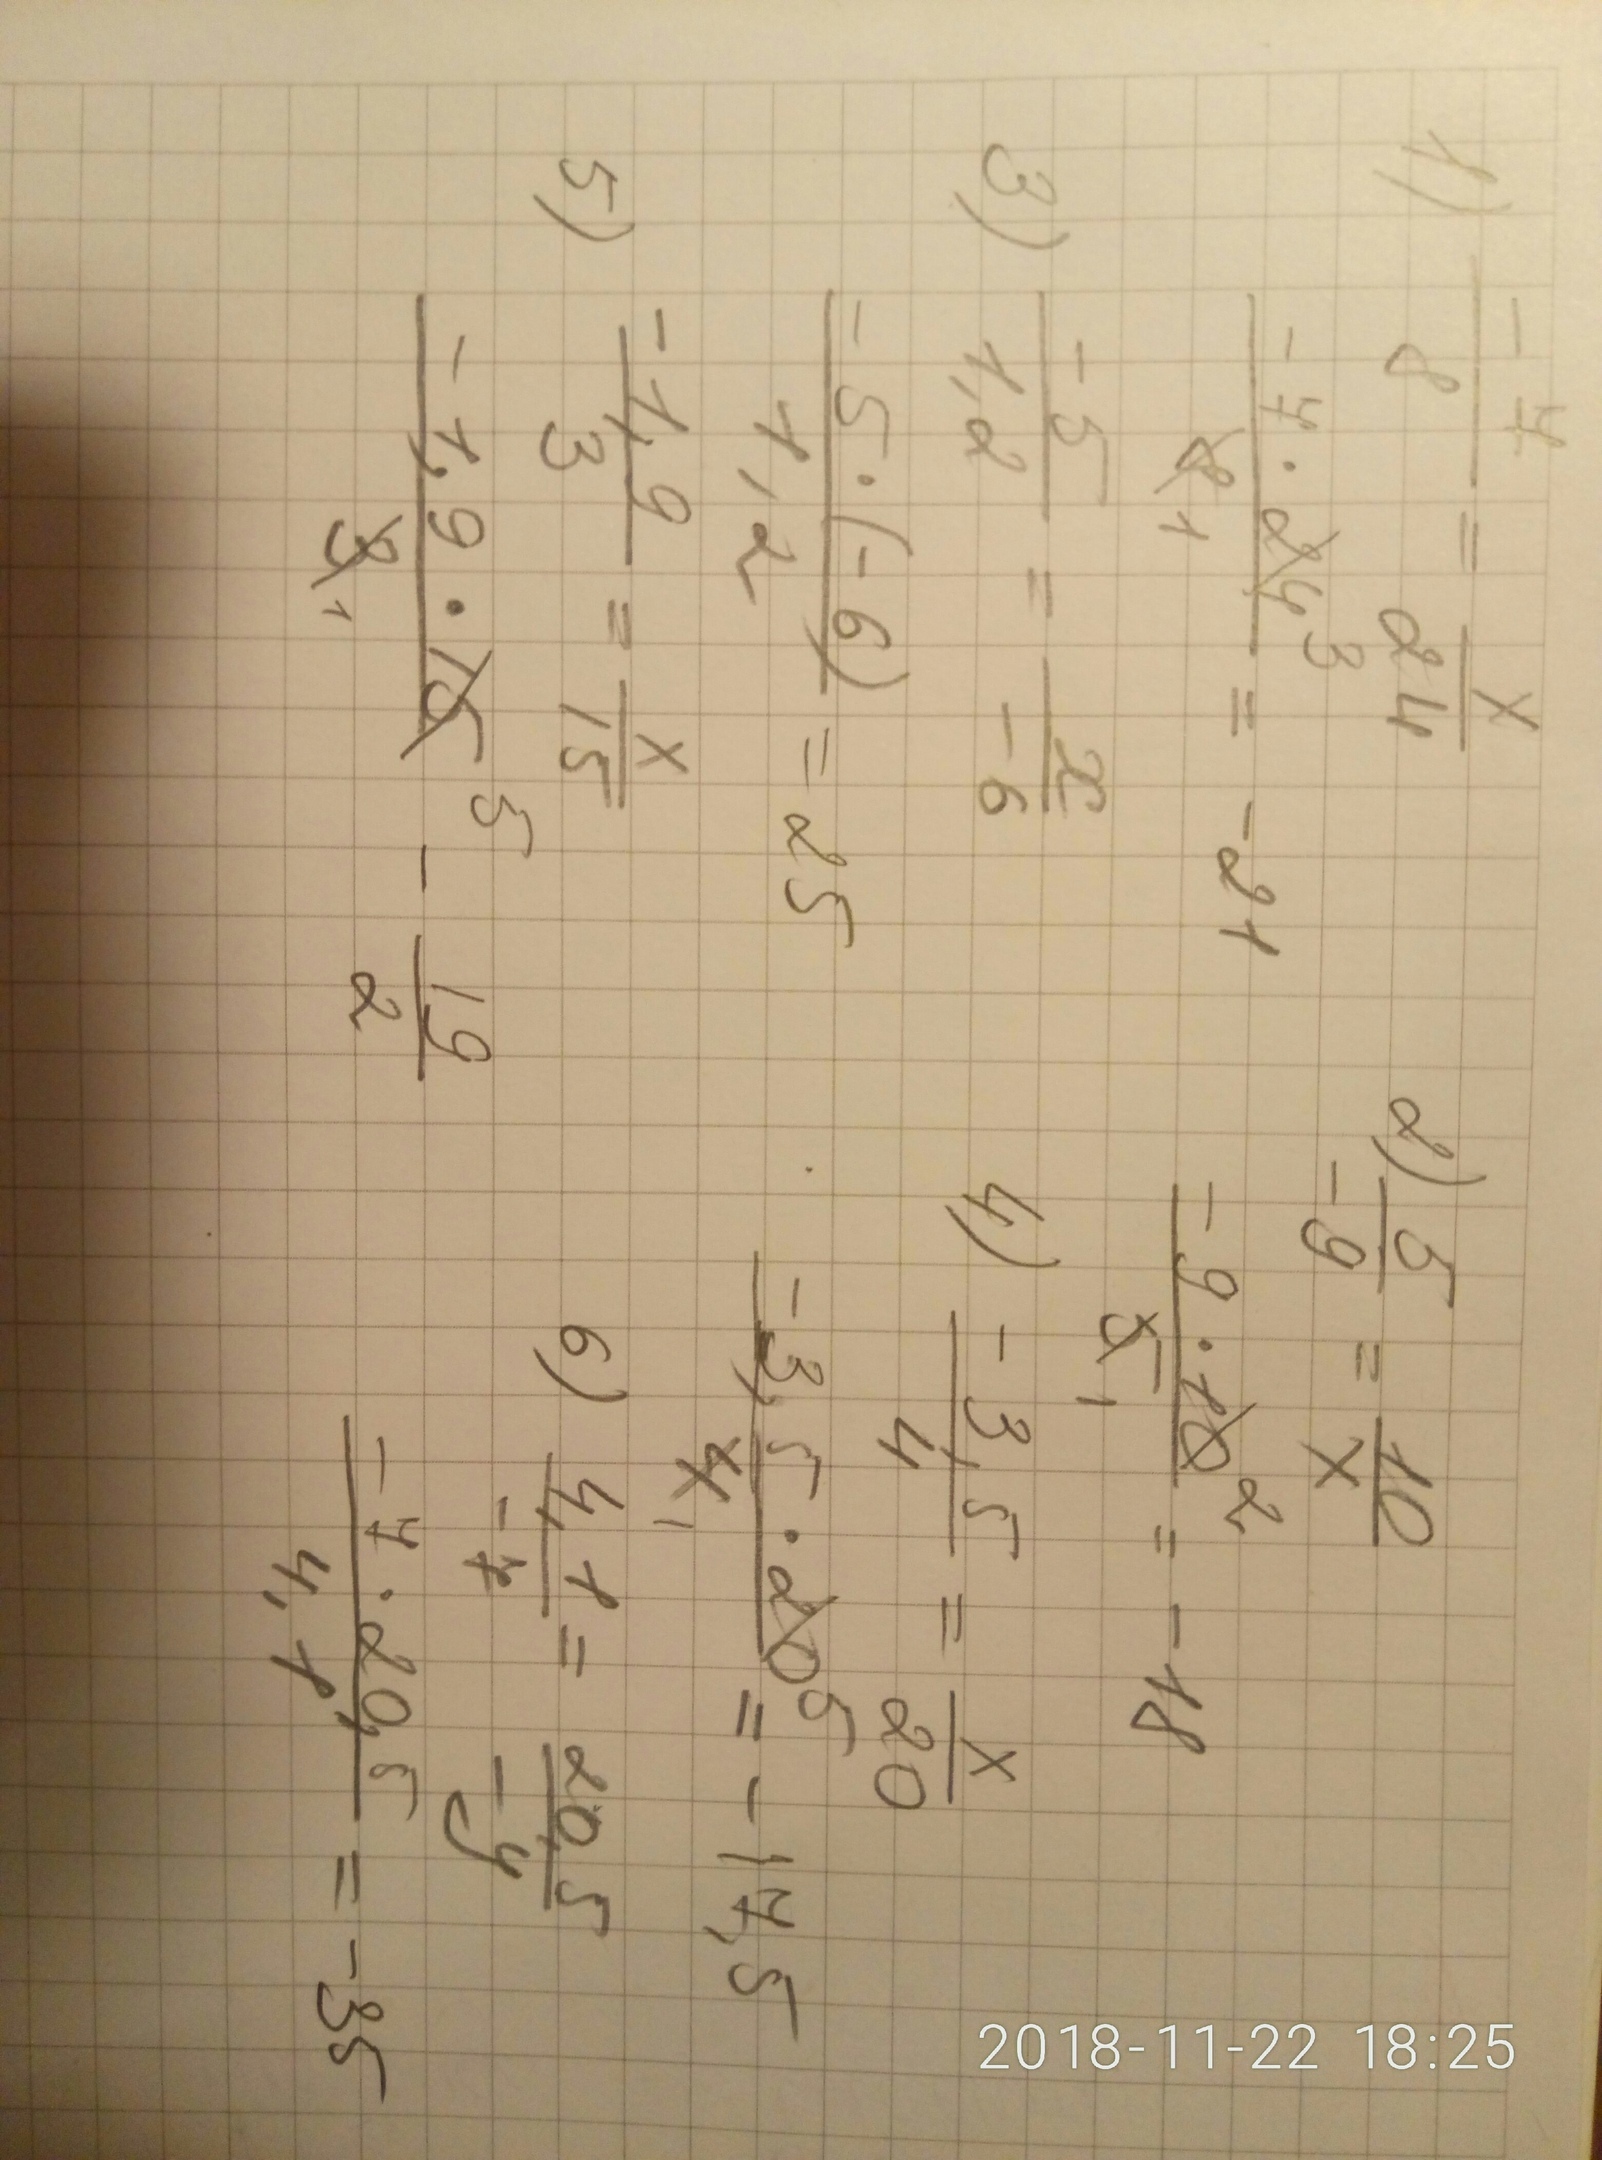 1) -7/8 = x/24
-7·24 3/8 1 = -21
2) 5/-9 = 10/x
-9·10 2/5 1 = -18
3) -5/1,2 = x/-6
-5·(-6)/1,2 = 25
4) -3,5/4 = x/20
-3,5·20 5/4 1 = -17,5
5) -1,9/3 = x/15
-1,9·15 5/3 1 - 19/2
6) 4,1/-7 = 20,5/-y
-7·20,5/4,1 = -35
2018-11-22 18:25